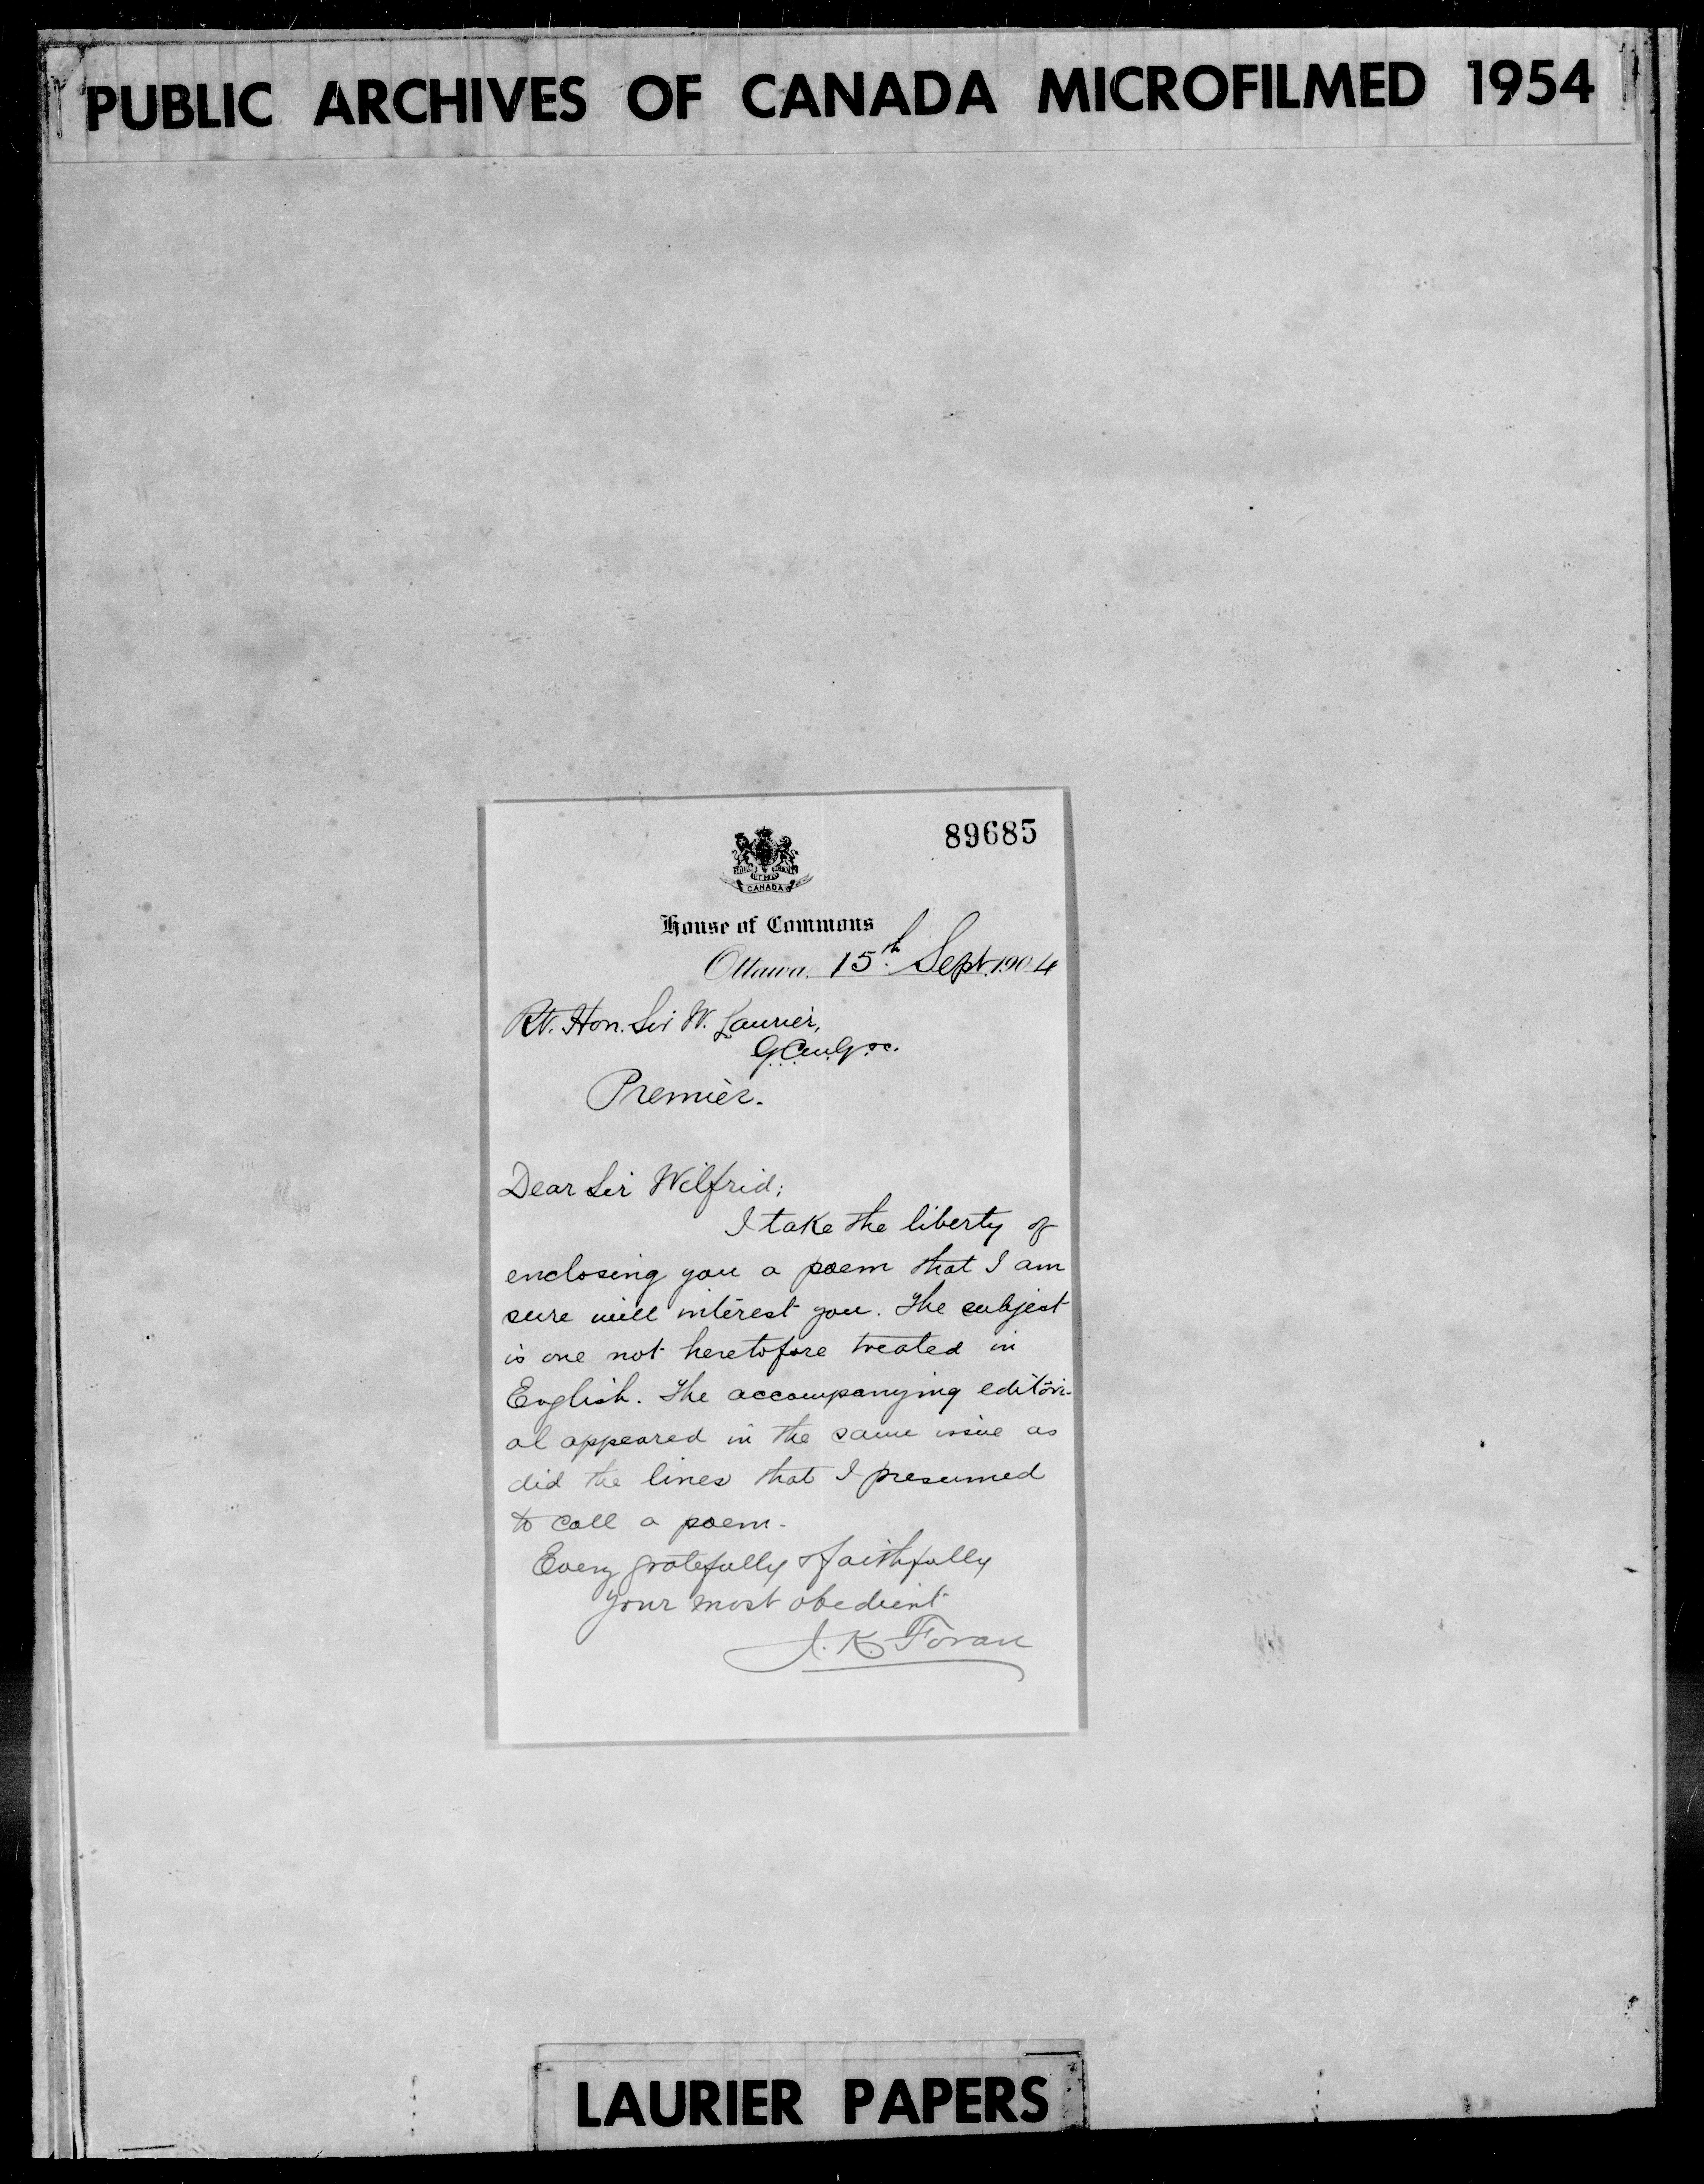 PUBLIC ARCHIVES OF CANADA MICROFILMED 1954
89685
CANADA
House of Commons
Ottawa, 15th Sept. 1904
Rt. Hon. Sir W. Laurier,
G.C.M.G. &c.
Premier.
Dear Sir Wilfrid;
I take the liberty of
enclosing you a poem that I am
sure will interest you. The subject
is one not heretofore treated in
English. The accompanying editori-
al appeared in the same issue as
did the lines that I presumed
to call a poem.
Every gratefully & faithfully
your most obedient
J. K. Foran
LAURIER PAPERS